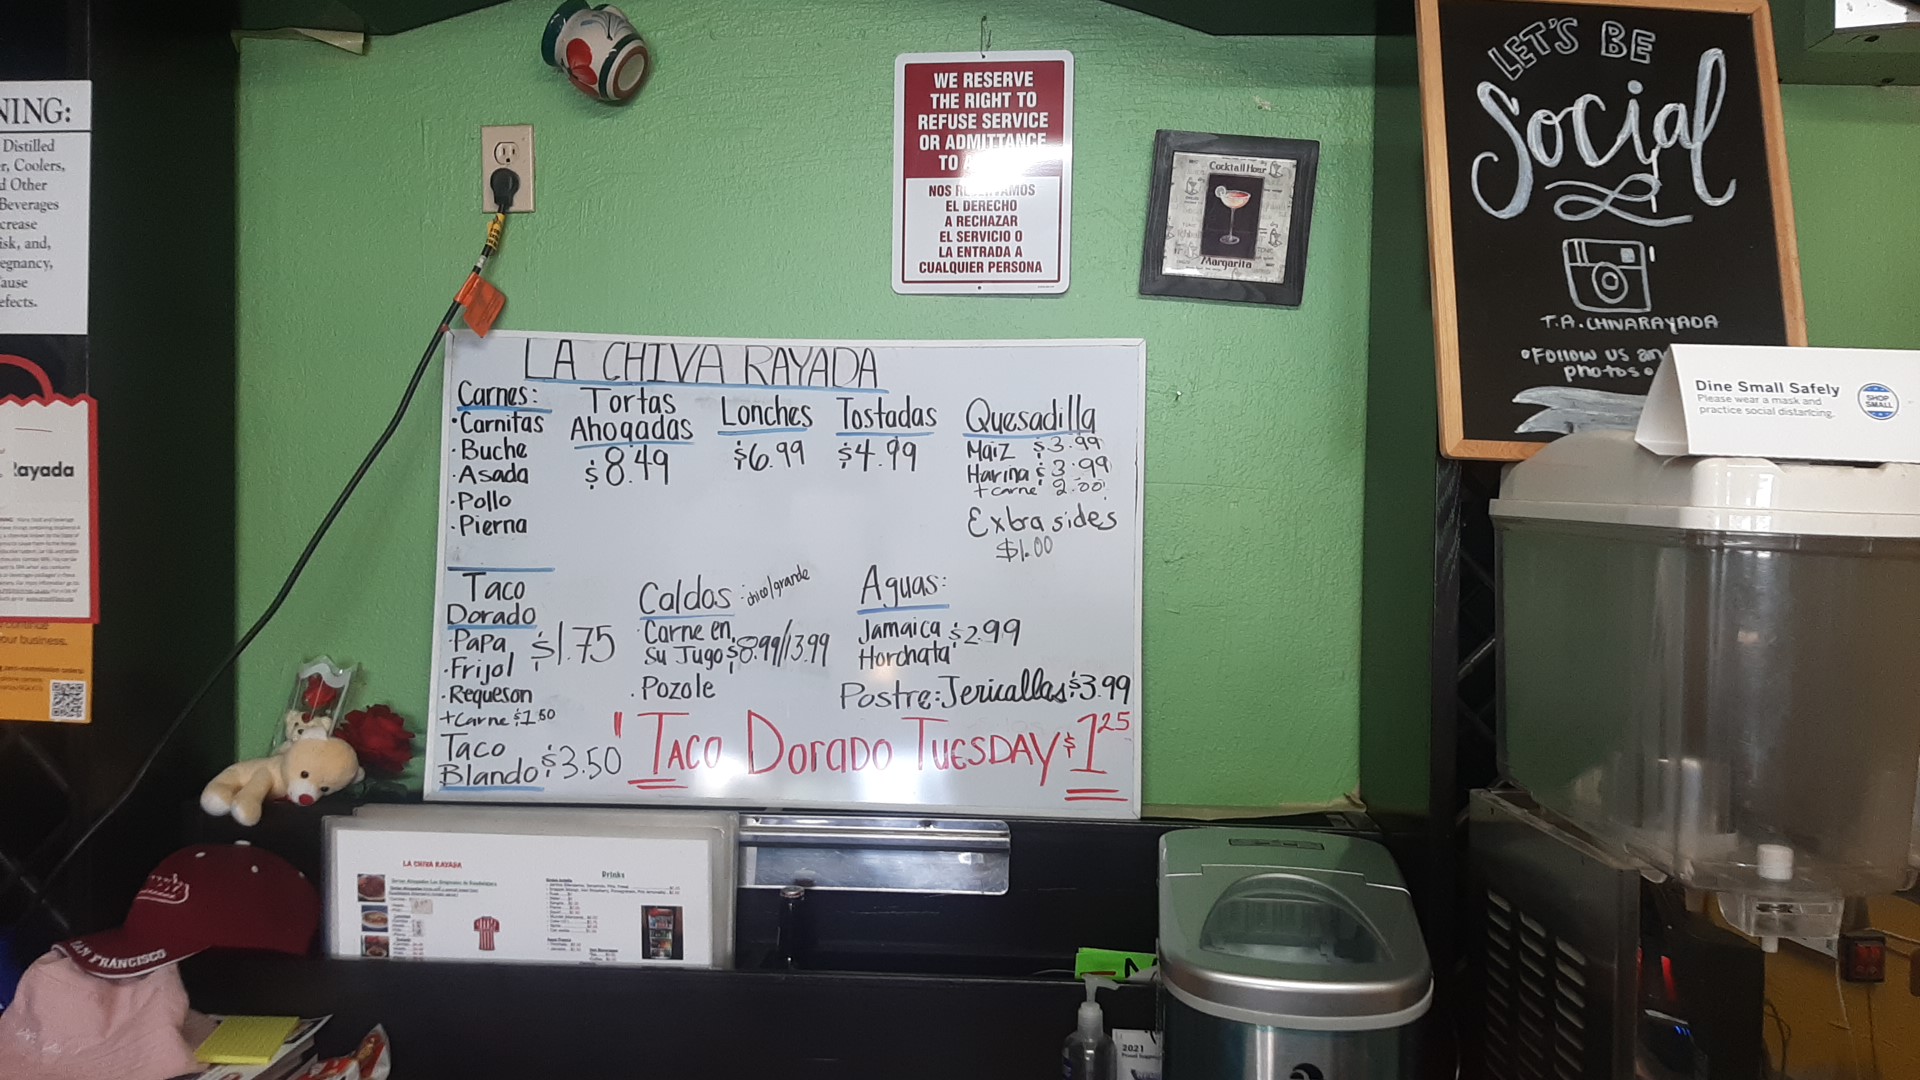 NING:
Distilled
r, Coolers,
d Other
Beverages
crease
isk, and,
egnancy,
ause
efects.
Rayada
our business.
WE RESERVE
THE RIGHT TO
REFUSE SERVICE
OR ADMITTANCE
TO A
NOS RESERVAMOS
EL DERECHO
A RECHAZAR
EL SERVICIO O
LA ENTRADA A
CUALQUIER PERSONA
Cocktail Hour
Margarita
LET'S BE
Social
T.A.CHIVARAYADA
•Follow us an
photos•
Dine Small Safely
Please wear a mask and
practice social distancing.
SHOP
SMALL
LA CHIVA RAYADA
Carnes:
·Carnitas
·Buche
·Asada
·Pollo
·Pierna
Tortas
Ahogadas
$8.49
Lonches
$6.99
Tostadas
$4.99
Quesadilla
Maiz $3.99
Harina $3.99
+carne 2.00
Extra sides
$1.00
Taco
Dorado
·Papa
·Frijol
$1.75
·Requeson
+Carne $1.50
Taco
Blando $3.50
Caldos - chico/grande
·Carne en
su Jugo $8.99/13.99
·Pozole
Aguas:
Jamaica $2.99
Horchata
Postre: Jericallas $3.99
"Taco Dorado Tuesday $1.25
LA CHIVA RAYADA
Drinks
SAN FRANCISCO
2021